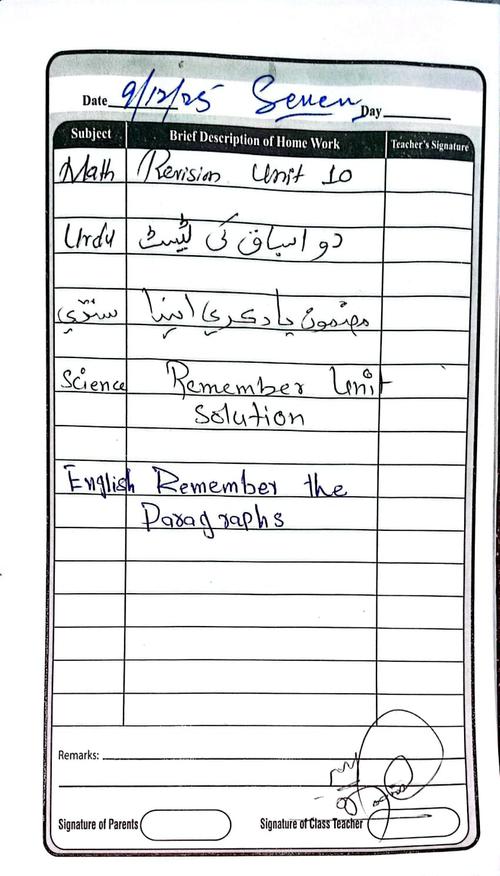 Date 9/12/25 Seven Day
Subject Brief Description of Home Work Teacher's Signature
Math Revision Unit 10
Urdu دو اسباق کی ٹیسٹ
سنڌي مضمون ياد ڪري اينا
Science Remember Unit
Solution
English Remember the
Paragraphs
Remarks:
Signature of Parents Signature of Class Teacher